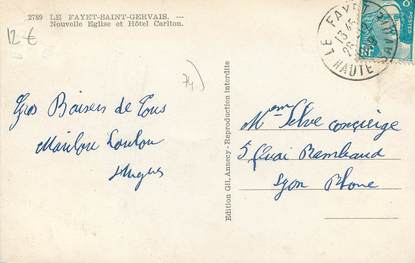 2789 LE FAYET-SAINT-GERVAIS. —
Nouvelle Eglise et Hôtel Carlton.
12 €
74)
LE FAYET
HAUTE
RF
Gros Baisers de Tous
Marilou Loulou
Hugues
Mme Selve concierge
5 Quai Rambaud
Lyon Rhone
Edition Gil, Annecy - Reproduction interdite